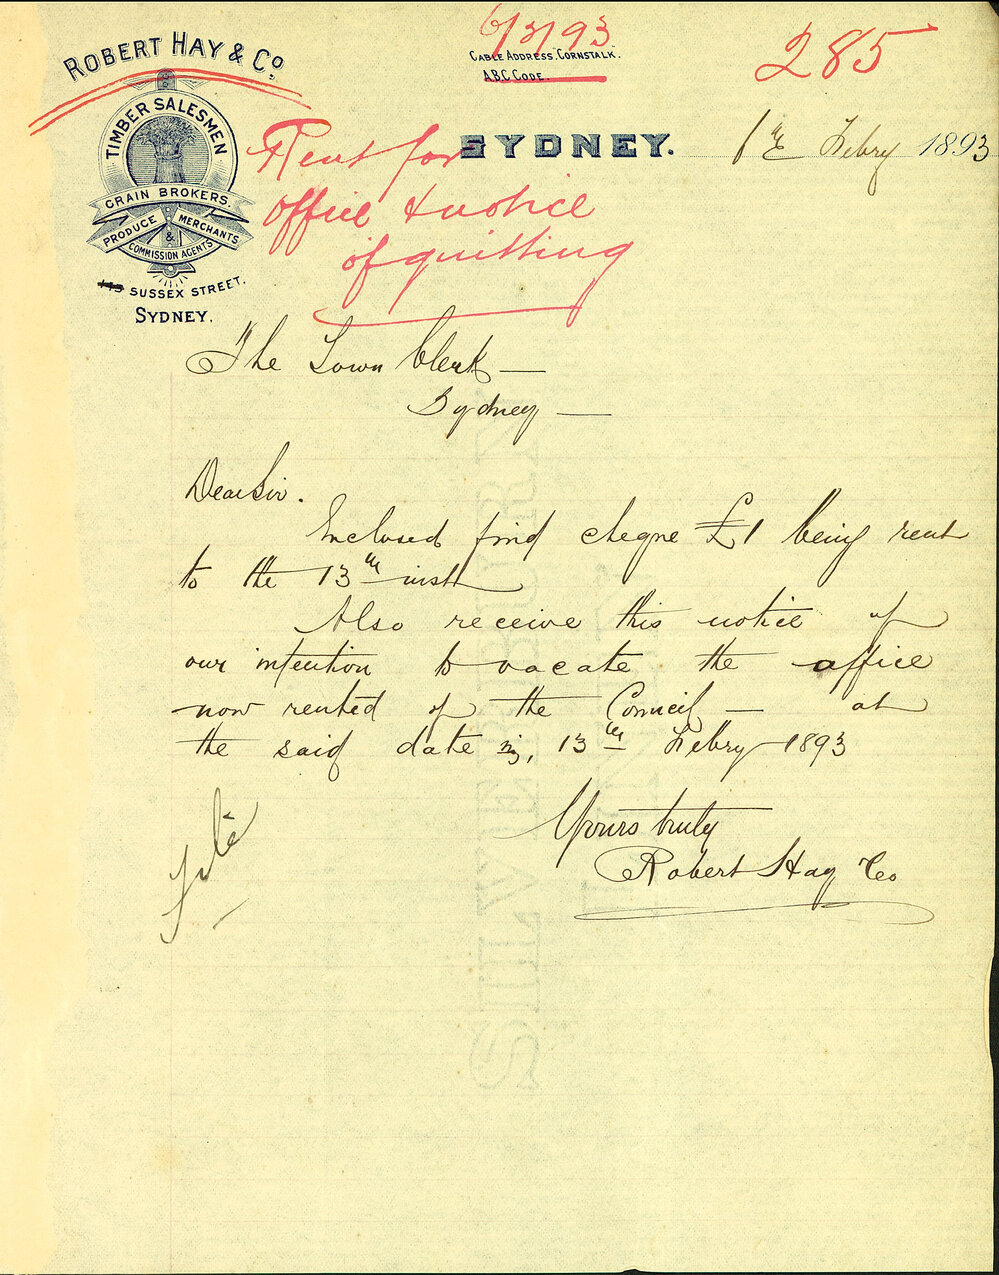 ROBERT HAY & Co.
TIMBER SALESMEN
GRAIN BROKERS.
PRODUCE & MERCHANTS
COMMISSION AGENTS
SUSSEX STREET.
SYDNEY.
CABLE ADDRESS. "CORNSTALK".
A.B.C. CODE.
285
Rent for
office & notice
of quitting
SYDNEY. 1st Febry 1893
The Town Clerk —
Sydney —
Dear Sir.
Enclosed find cheque £1 being rent
to the 13th inst
Also receive this notice of
our intention to vacate the office
now rented of the Council — at
the said date viz, 13th Febry 1893
Yours truly
Robert Hay & Co
SILVERBURY